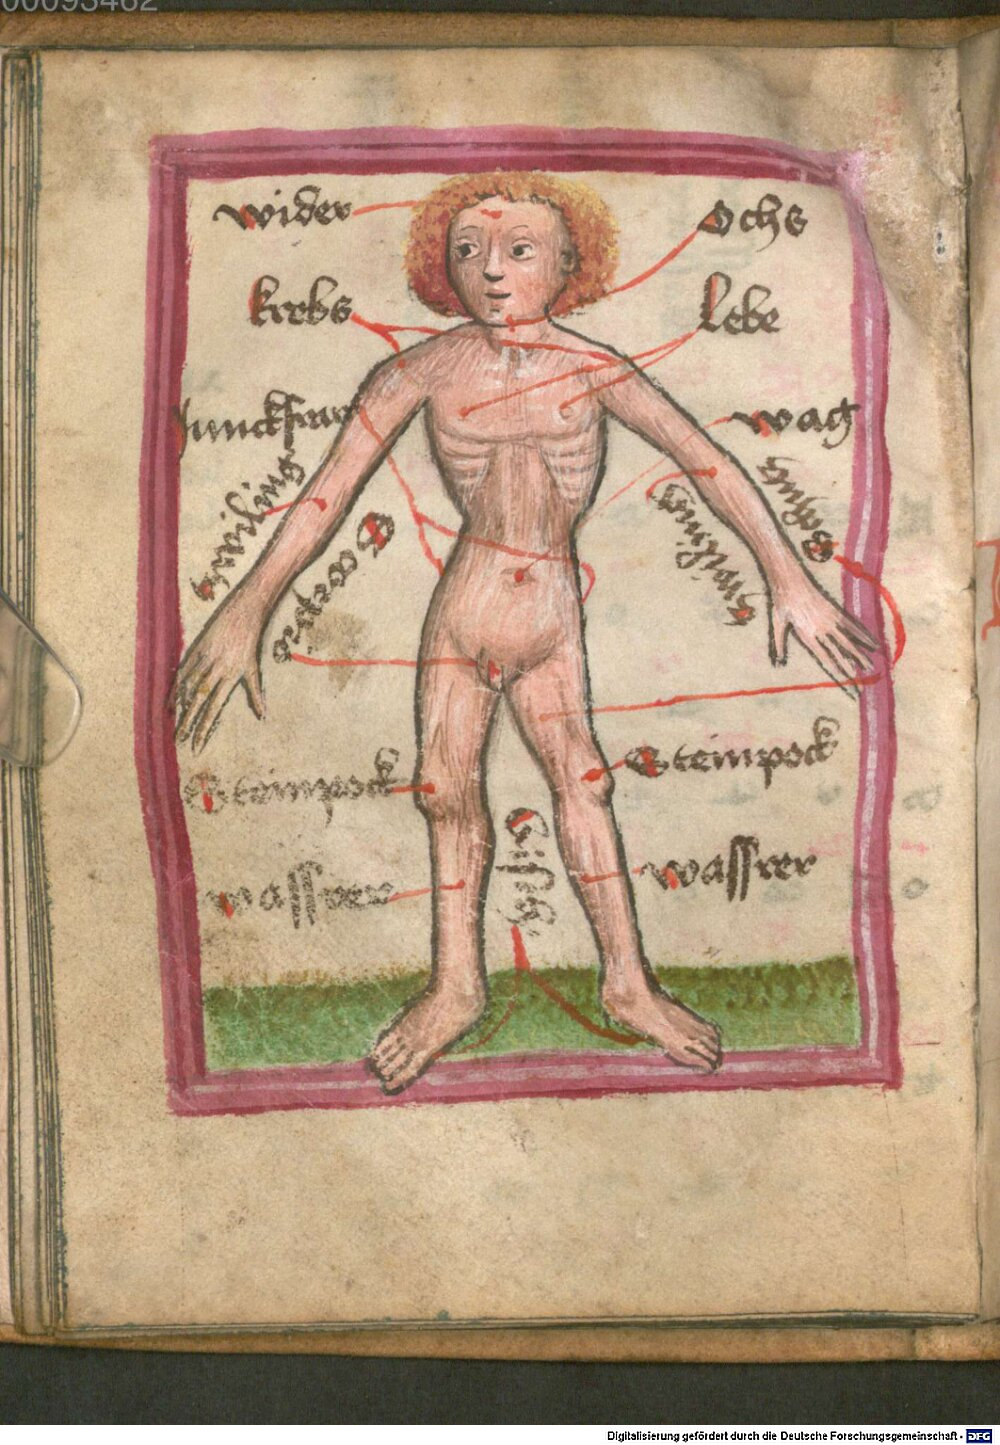 00093462
wider
Ochs
krebs
lebe
Junckfraw
wag
zwiling
Scorpio
zwiling
Schutz
Steinpock
Steinpock
wassrer
wassrer
visch
Digitalisierung gefördert durch die Deutsche Forschungsgemeinschaft - DFG